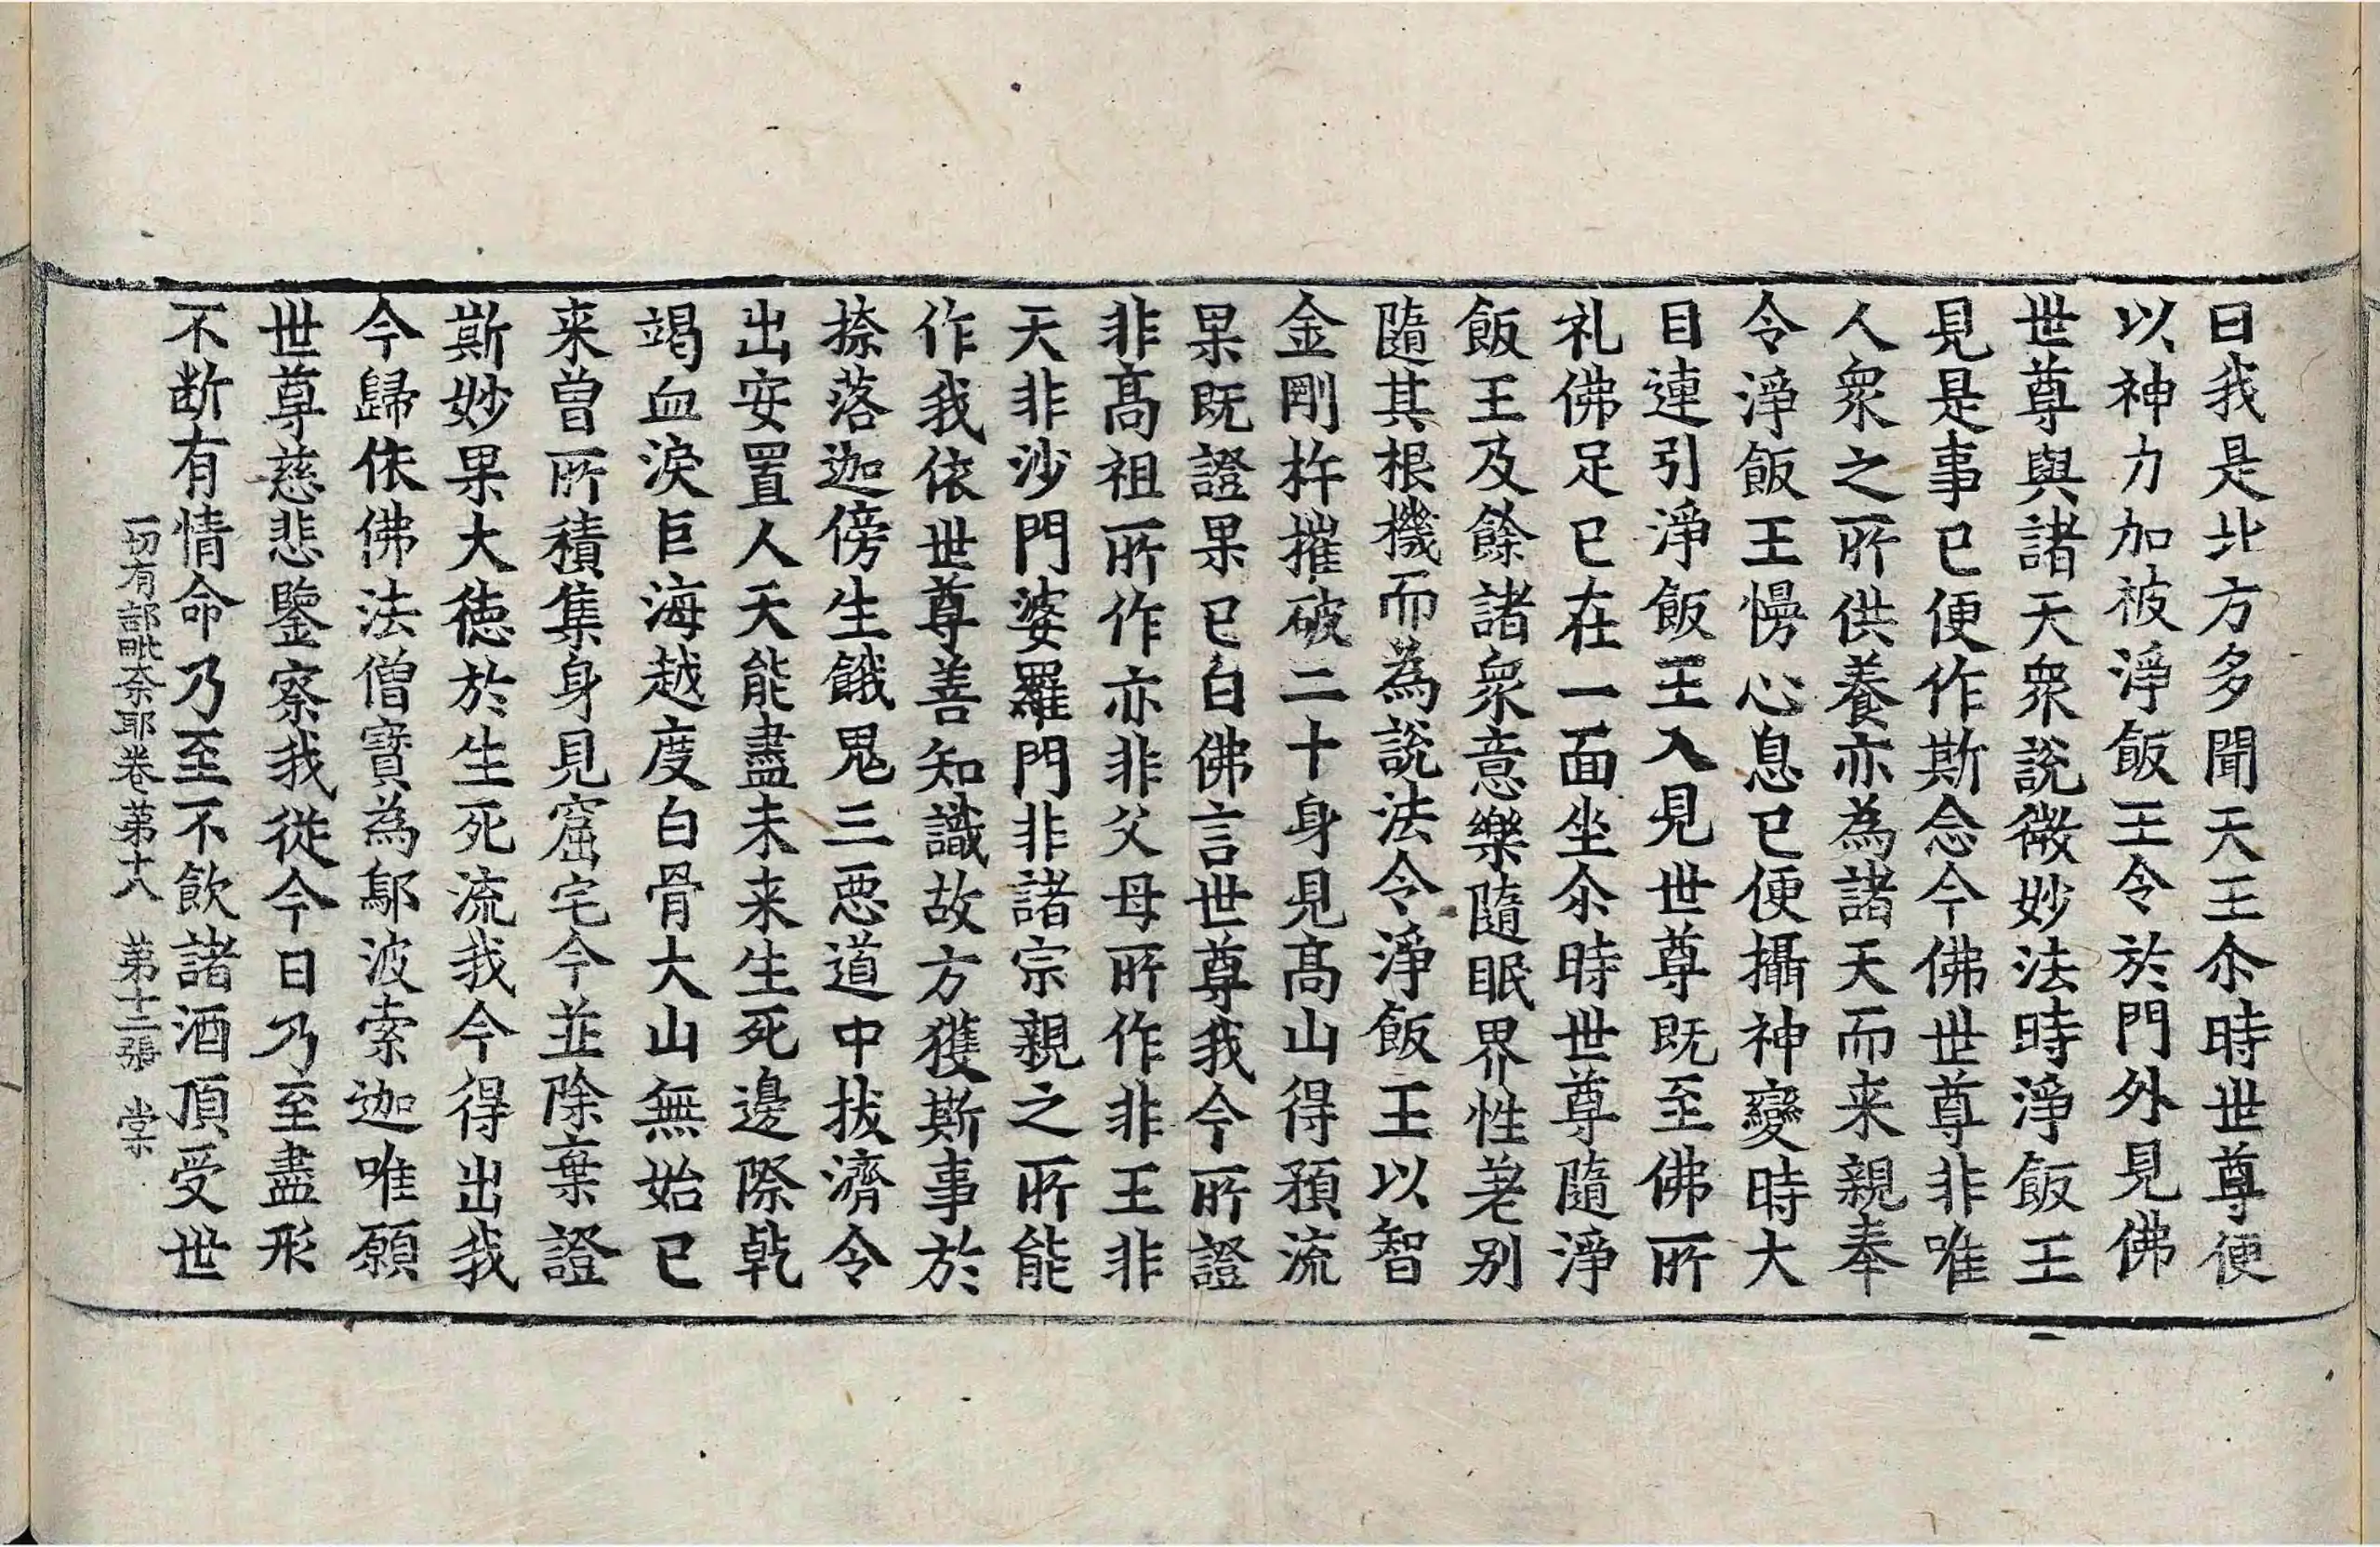 曰我是北方多聞天王尒時世尊便
以神力加被淨飯王令於門外見佛
世尊與諸天衆說微妙法時淨飯王
見是事已便作斯念今佛世尊非唯
人衆之所供養亦為諸天而来親奉
令淨飯王慢心息已便攝神變時大
目連引淨飯王入見世尊既至佛所
礼佛足已在一面坐尒時世尊隨淨
飯王及餘諸衆意樂隨眠界性差别
隨其根機而為說法令淨飯王以智
金剛杵摧破二十身見髙山得預流
果既證果已白佛言世尊我今所證
非髙祖所作亦非父母所作非王非
天非沙門婆羅門非諸宗親之所能
作我依世尊善知識故方獲斯事於
捺落迦傍生餓鬼三惡道中拔濟令
出安置人天能盡未来生死邊際乾
竭血淚巨海越度白骨大山無始已
来曾所積集身見窟宅今並除棄證
斯妙果大德於生死流我今得出我
今歸依佛法僧寶為鄔波索迦唯願
世尊慈悲鑒察我從今日乃至盡形
不断有情命乃至不飲諸酒頂受世
一切有部毗奈耶卷苐十八 苐十二張 棠